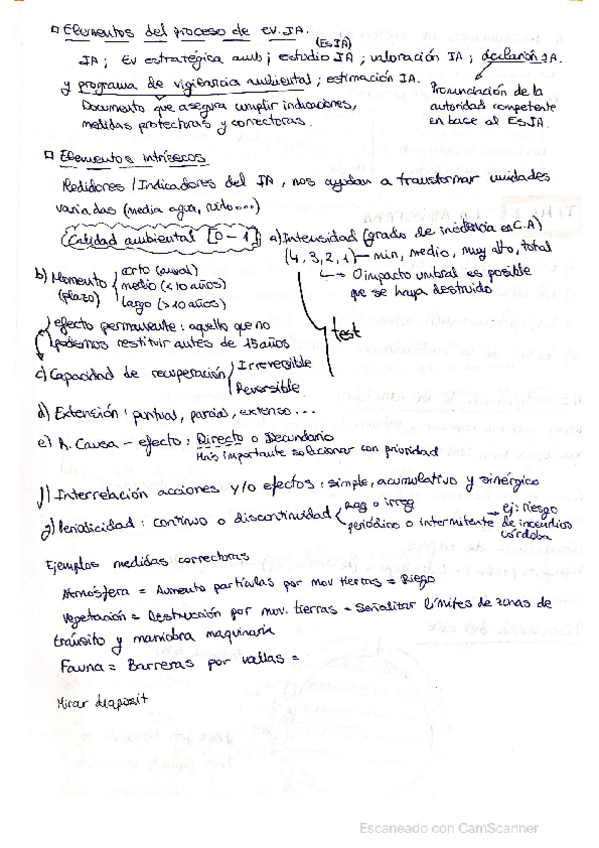 Elementos del proceso de EV. IA.
(EsIA)
IA; EV estratégica amb; estudio IA; valoración IA; declaración IA.
y programa de vigilancia ambiental; estimación IA.
Documento que asegura cumplir indicaciones,
medidas protectoras y correctoras.
Pronunciación de la
autoridad competente
en base al EsIA.
Elementos intrísecos
Medidores / Indicadores del IA, nos ayudan a transformar unidades
variadas (media agua, ruido...)
Calidad ambiental [0-1]
a) Intensidad (grados de incidencia en C.A)
(4, 3, 2, 1) – min, medio, muy alto, total
→ O impacto umbral es posible
que se haya destruido
b) Momento (plazo)
corto (anual)
medio (<10 años)
largo (>10 años)
test
efecto permanente: aquello que no
podemos restituir antes de 15 años
c) Capacidad de recuperación
Irreversible
Reversible
d) Extensión: puntual, parcial, extenso...
e) R. Causa – efecto: Directo o Secundario
Más importante solucionar con prioridad
f) Interrelación acciones y/o efectos: simple, acumulativo y sinérgico
g) Periodicidad: continuo o discontinuidad
reg o irreg
periódico o intermitente → ej: riesgo
de incendios
córdoba
Ejemplos medidas correctoras
Atmósfera = Aumento partículas por mov tierras = Riego
Vegetación = Destrucción por mov. tierras = Señalizar límites de zonas de
tránsito y maniobra maquinaria
Fauna = Barreras por vallas =
Mirar diaposit
Escaneado con CamScanner